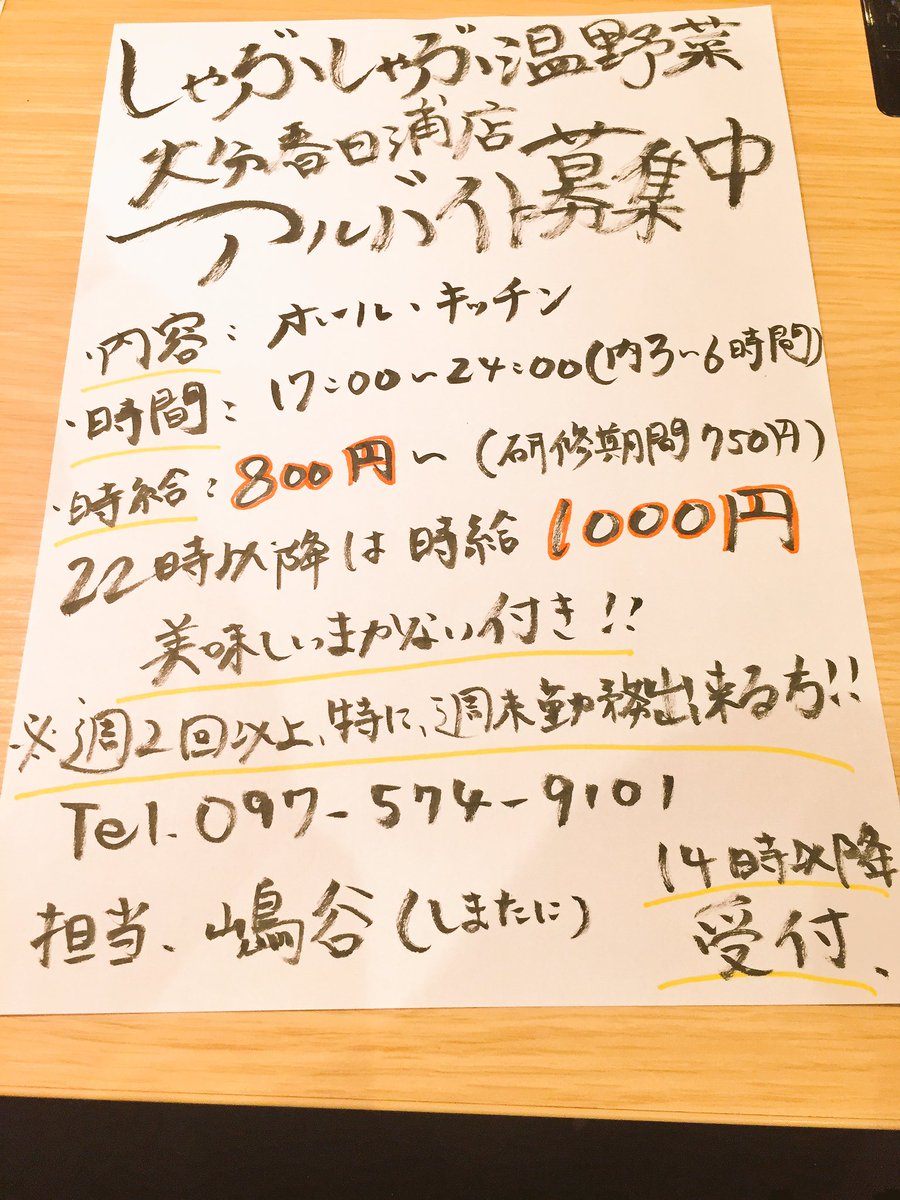 しゃぶしゃぶ温野菜
大分春日浦店
アルバイト募集中
・内容：ホール・キッチン
・時間：17:00〜24:00(内3〜6時間)
・時給：800円〜(研修期間750円)
22時以降は時給1000円
美味しいまかない付き!!
※週2回以上、特に、週末勤務出来る方!!
Tel.097-574-9101
14時以降
担当、嶋谷(しまたに)
受付、